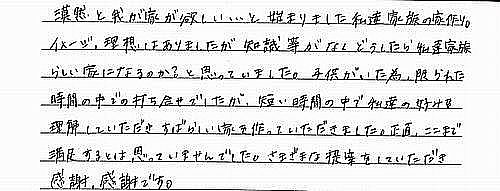 漠然と我が家が欲しい、と始まりました私達家族の家作り。
イメージ、理想はありましたが知識等がなくどうしたら私達家族
らしい家になるのか？と思っていました。子供がいた為、限られた
時間の中での打ち合せでしたが、短い時間の中で私達の好みを
理解していただきすばらしい家を作っていただきました。正直、ここまで
満足するとは思っていませんでした。さまざまな提案をしていただき
感謝、感謝です。